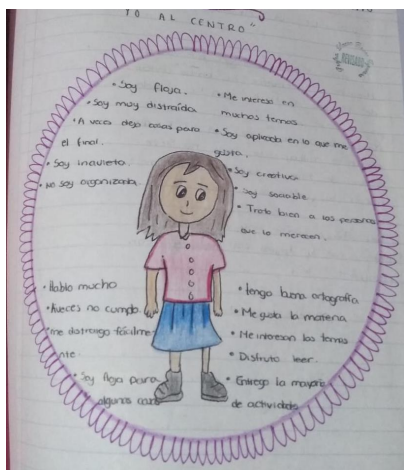 TO AL CENTRO"
REVISADO
• Soy floja.
• Soy muy distraida
• A veces dejo cosas para
el final.
• Soy inquieto
• No soy organizada.
• Me intereso en
muchos temas.
• Soy aplicada en lo que me
gusta.
• Soy creativa
• Soy sociable
• Trato bien a las personas
que lo merecen.
• Hablo mucho
• Aveces no cumplo.
• me distraigo fácilme
nte.
• Soy floja para
algunas cosas
• tengo buena ortografía
• Me gusta la materia
• Me interesan los temas
• Disfruto leer.
• Entrego la mayoría
de actividades